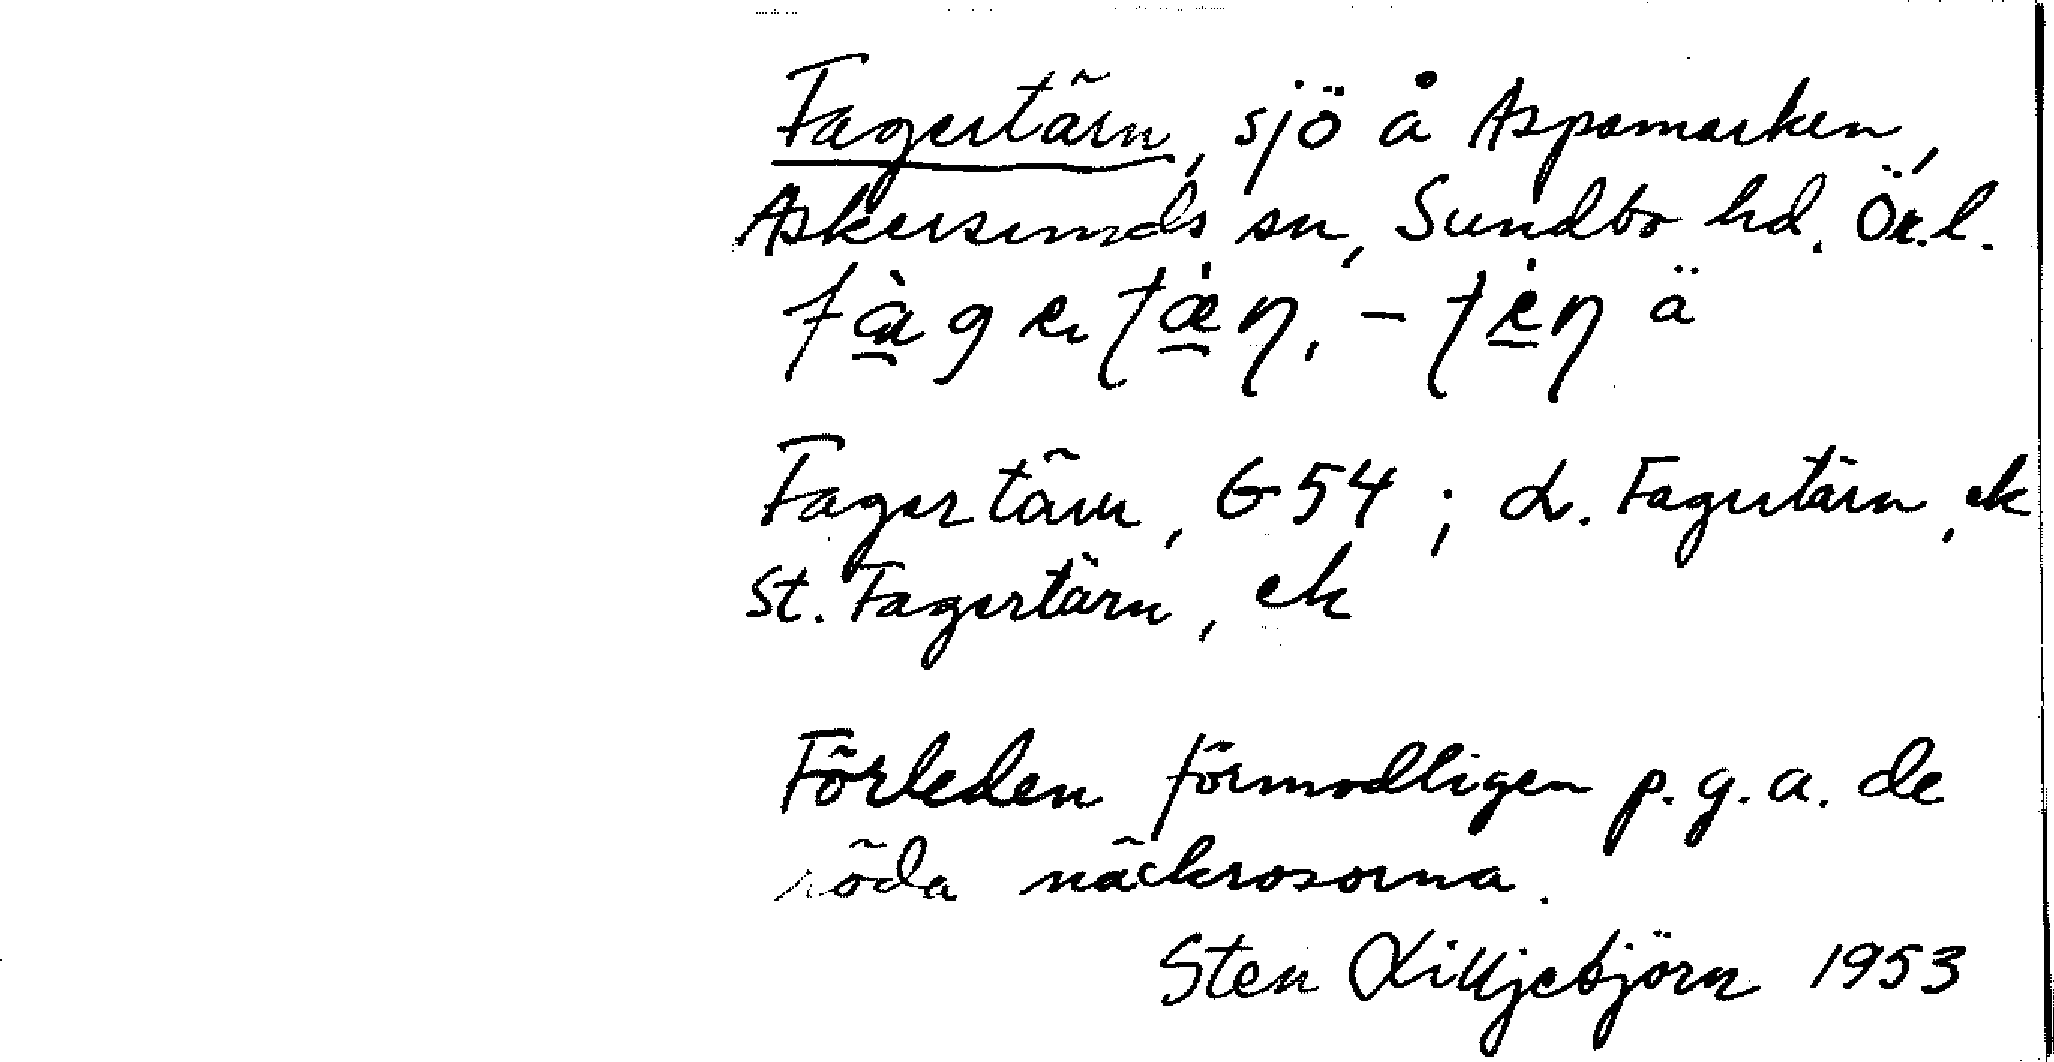 Fagertärn, sjö å Aspamarken,
Askersunds sn, Sundbo hd. Ör.l.
fàgertæ̀n, -tèn ä
Fagertärn, G54; L. Fagertärn, ek
St. Fagertärn, ek
Förleden förmodligen p.g.a. de
röda näckrosorna.
Sten Lilljebjörn 1953